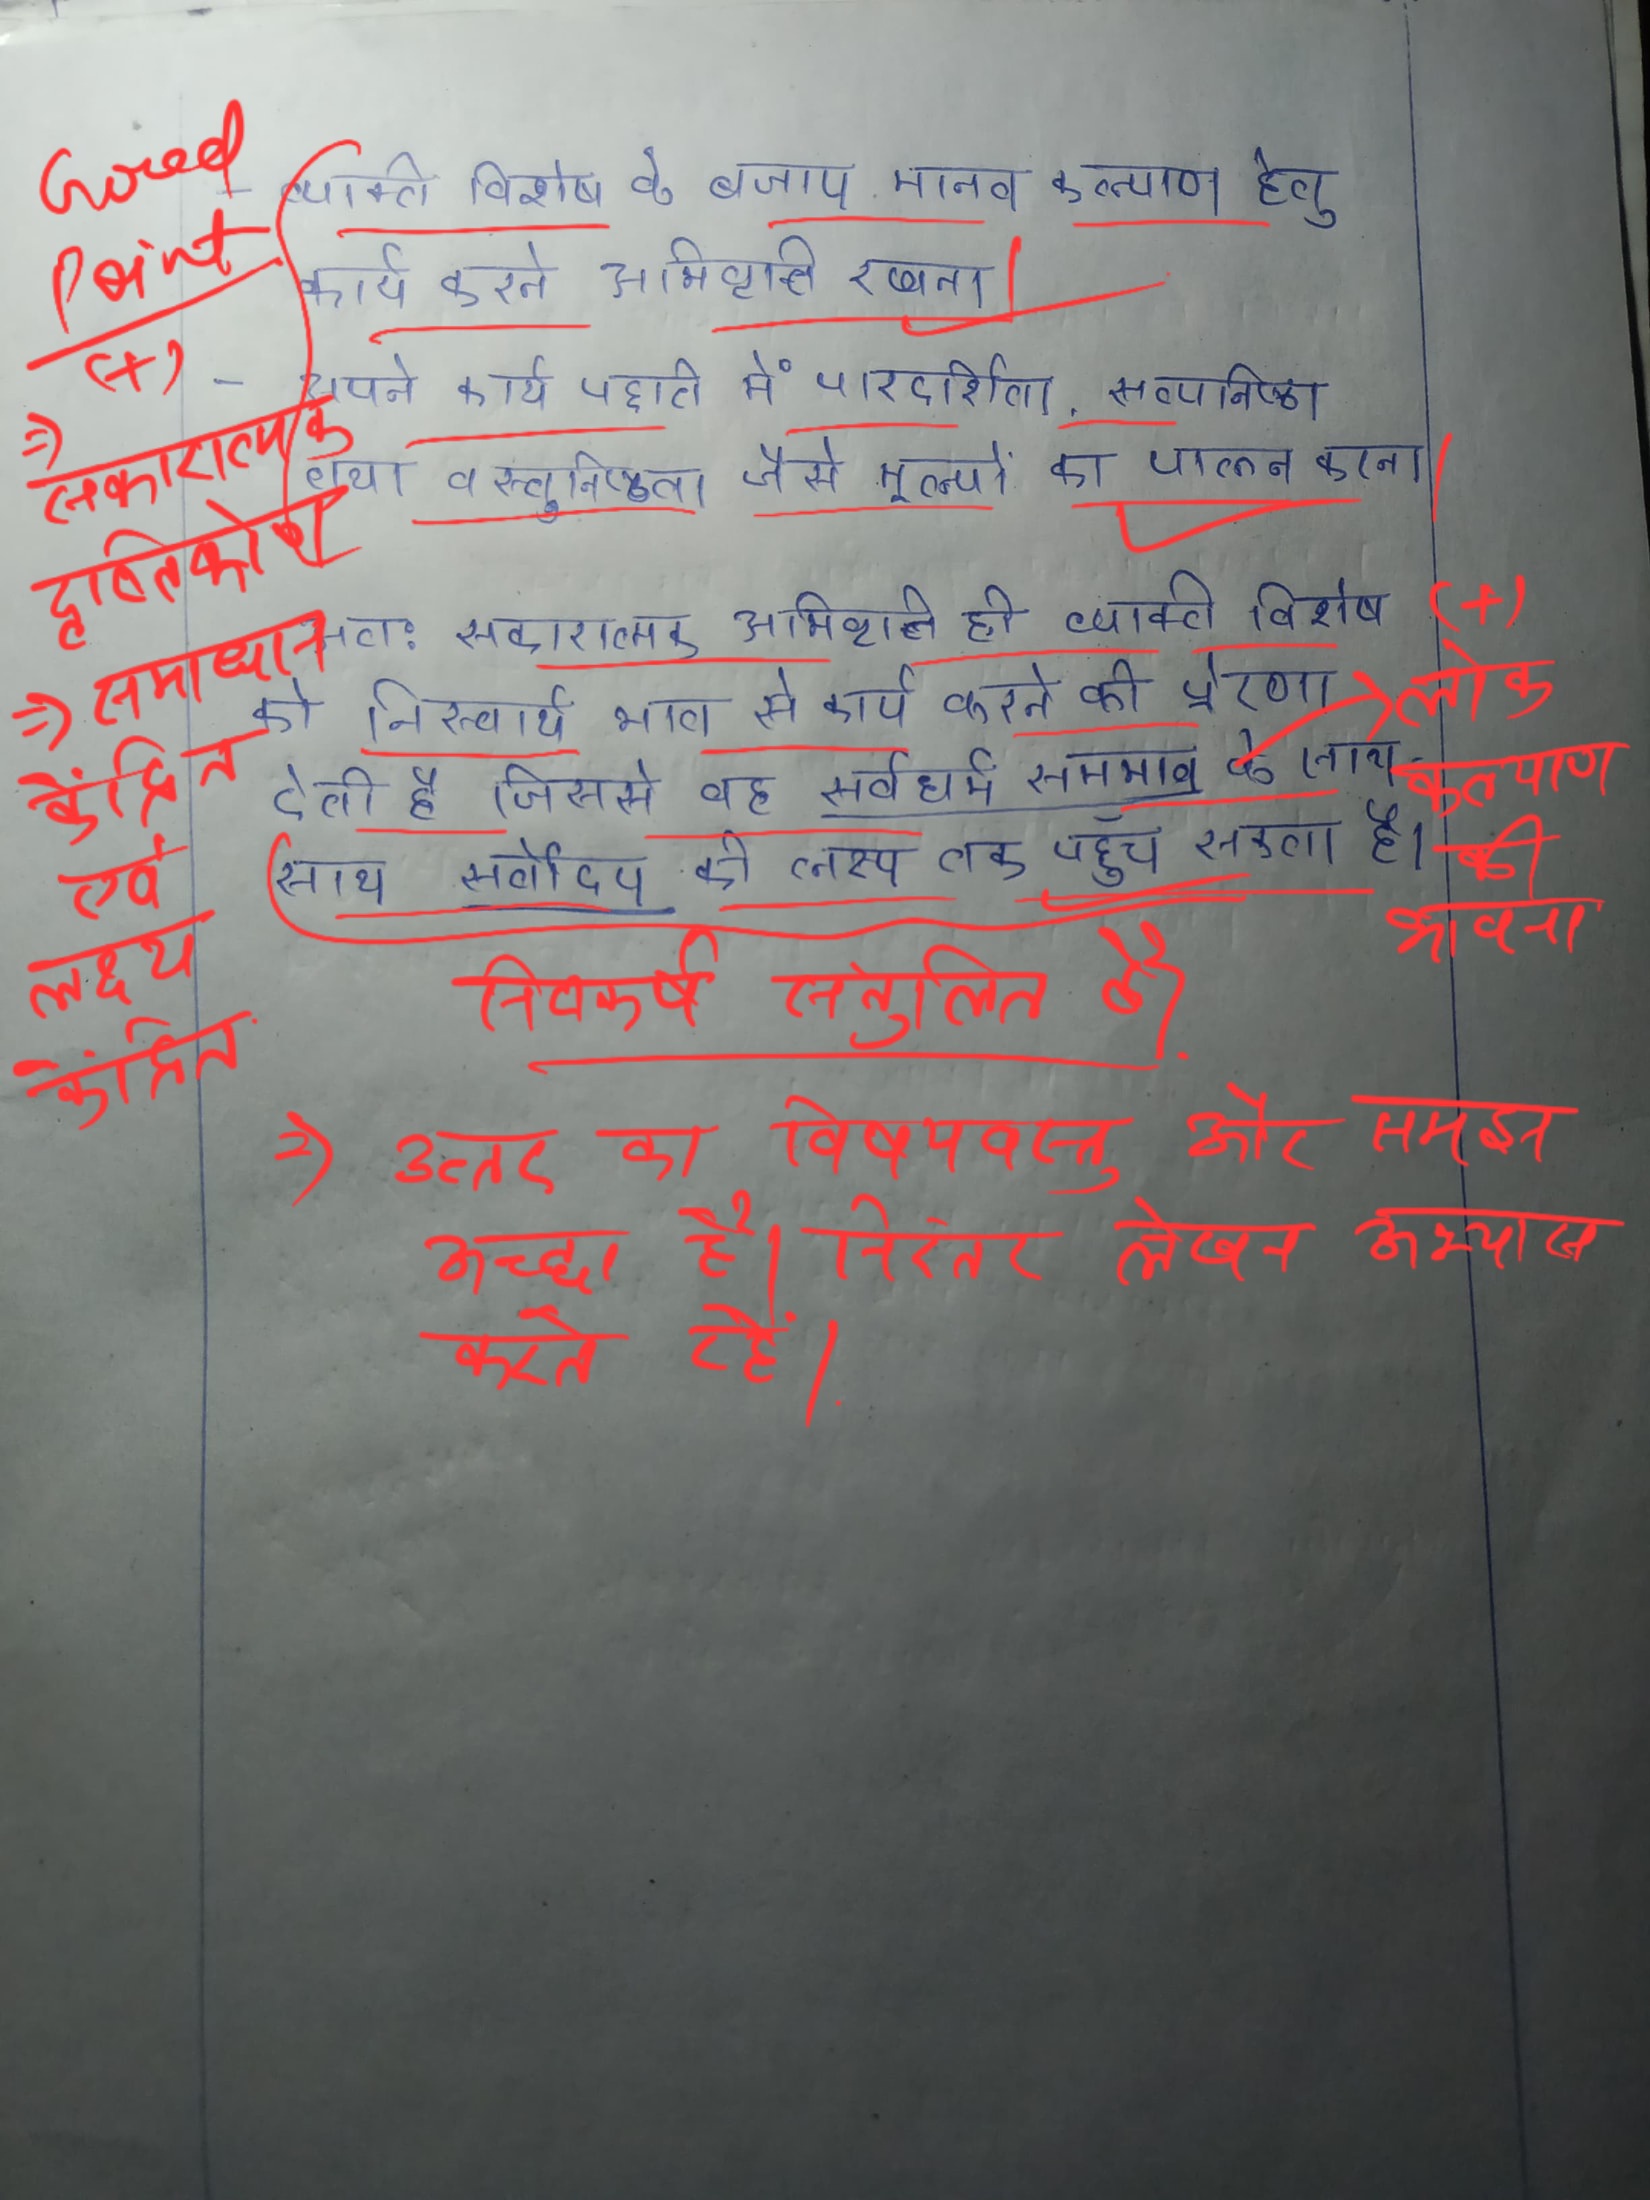 Good
Point
(+)
⇒
सकारात्मक
दृष्टिकोण
⇒ समाधान
केंद्रित
एवं
लक्ष्य
केंद्रित
- व्यक्ति विशेष के बजाय मानव कल्याण हेतु
कार्य करने अभिवृत्ति रखना।
- अपने कार्य पद्धति में पारदर्शिता, सत्यनिष्ठा
तथा वस्तुनिष्ठता जैसे मूल्यों का पालन करना।
अतः सकारात्मक अभिवृत्ति ही व्यक्ति विशेष
को निस्वार्थ भाव से कार्य करने की प्रेरणा
देती है जिससे वह सर्वधर्म समभाव के साथ-
साथ सर्वोदय की लक्ष्य तक पहुँच सकता है।
(+)
→ लोक
कल्याण
की
भावना
निष्कर्ष संतुलित है।
⇒ उत्तर का विषयवस्तु और समझ
अच्छा है। निरंतर लेखन अभ्यास
करते रहें।